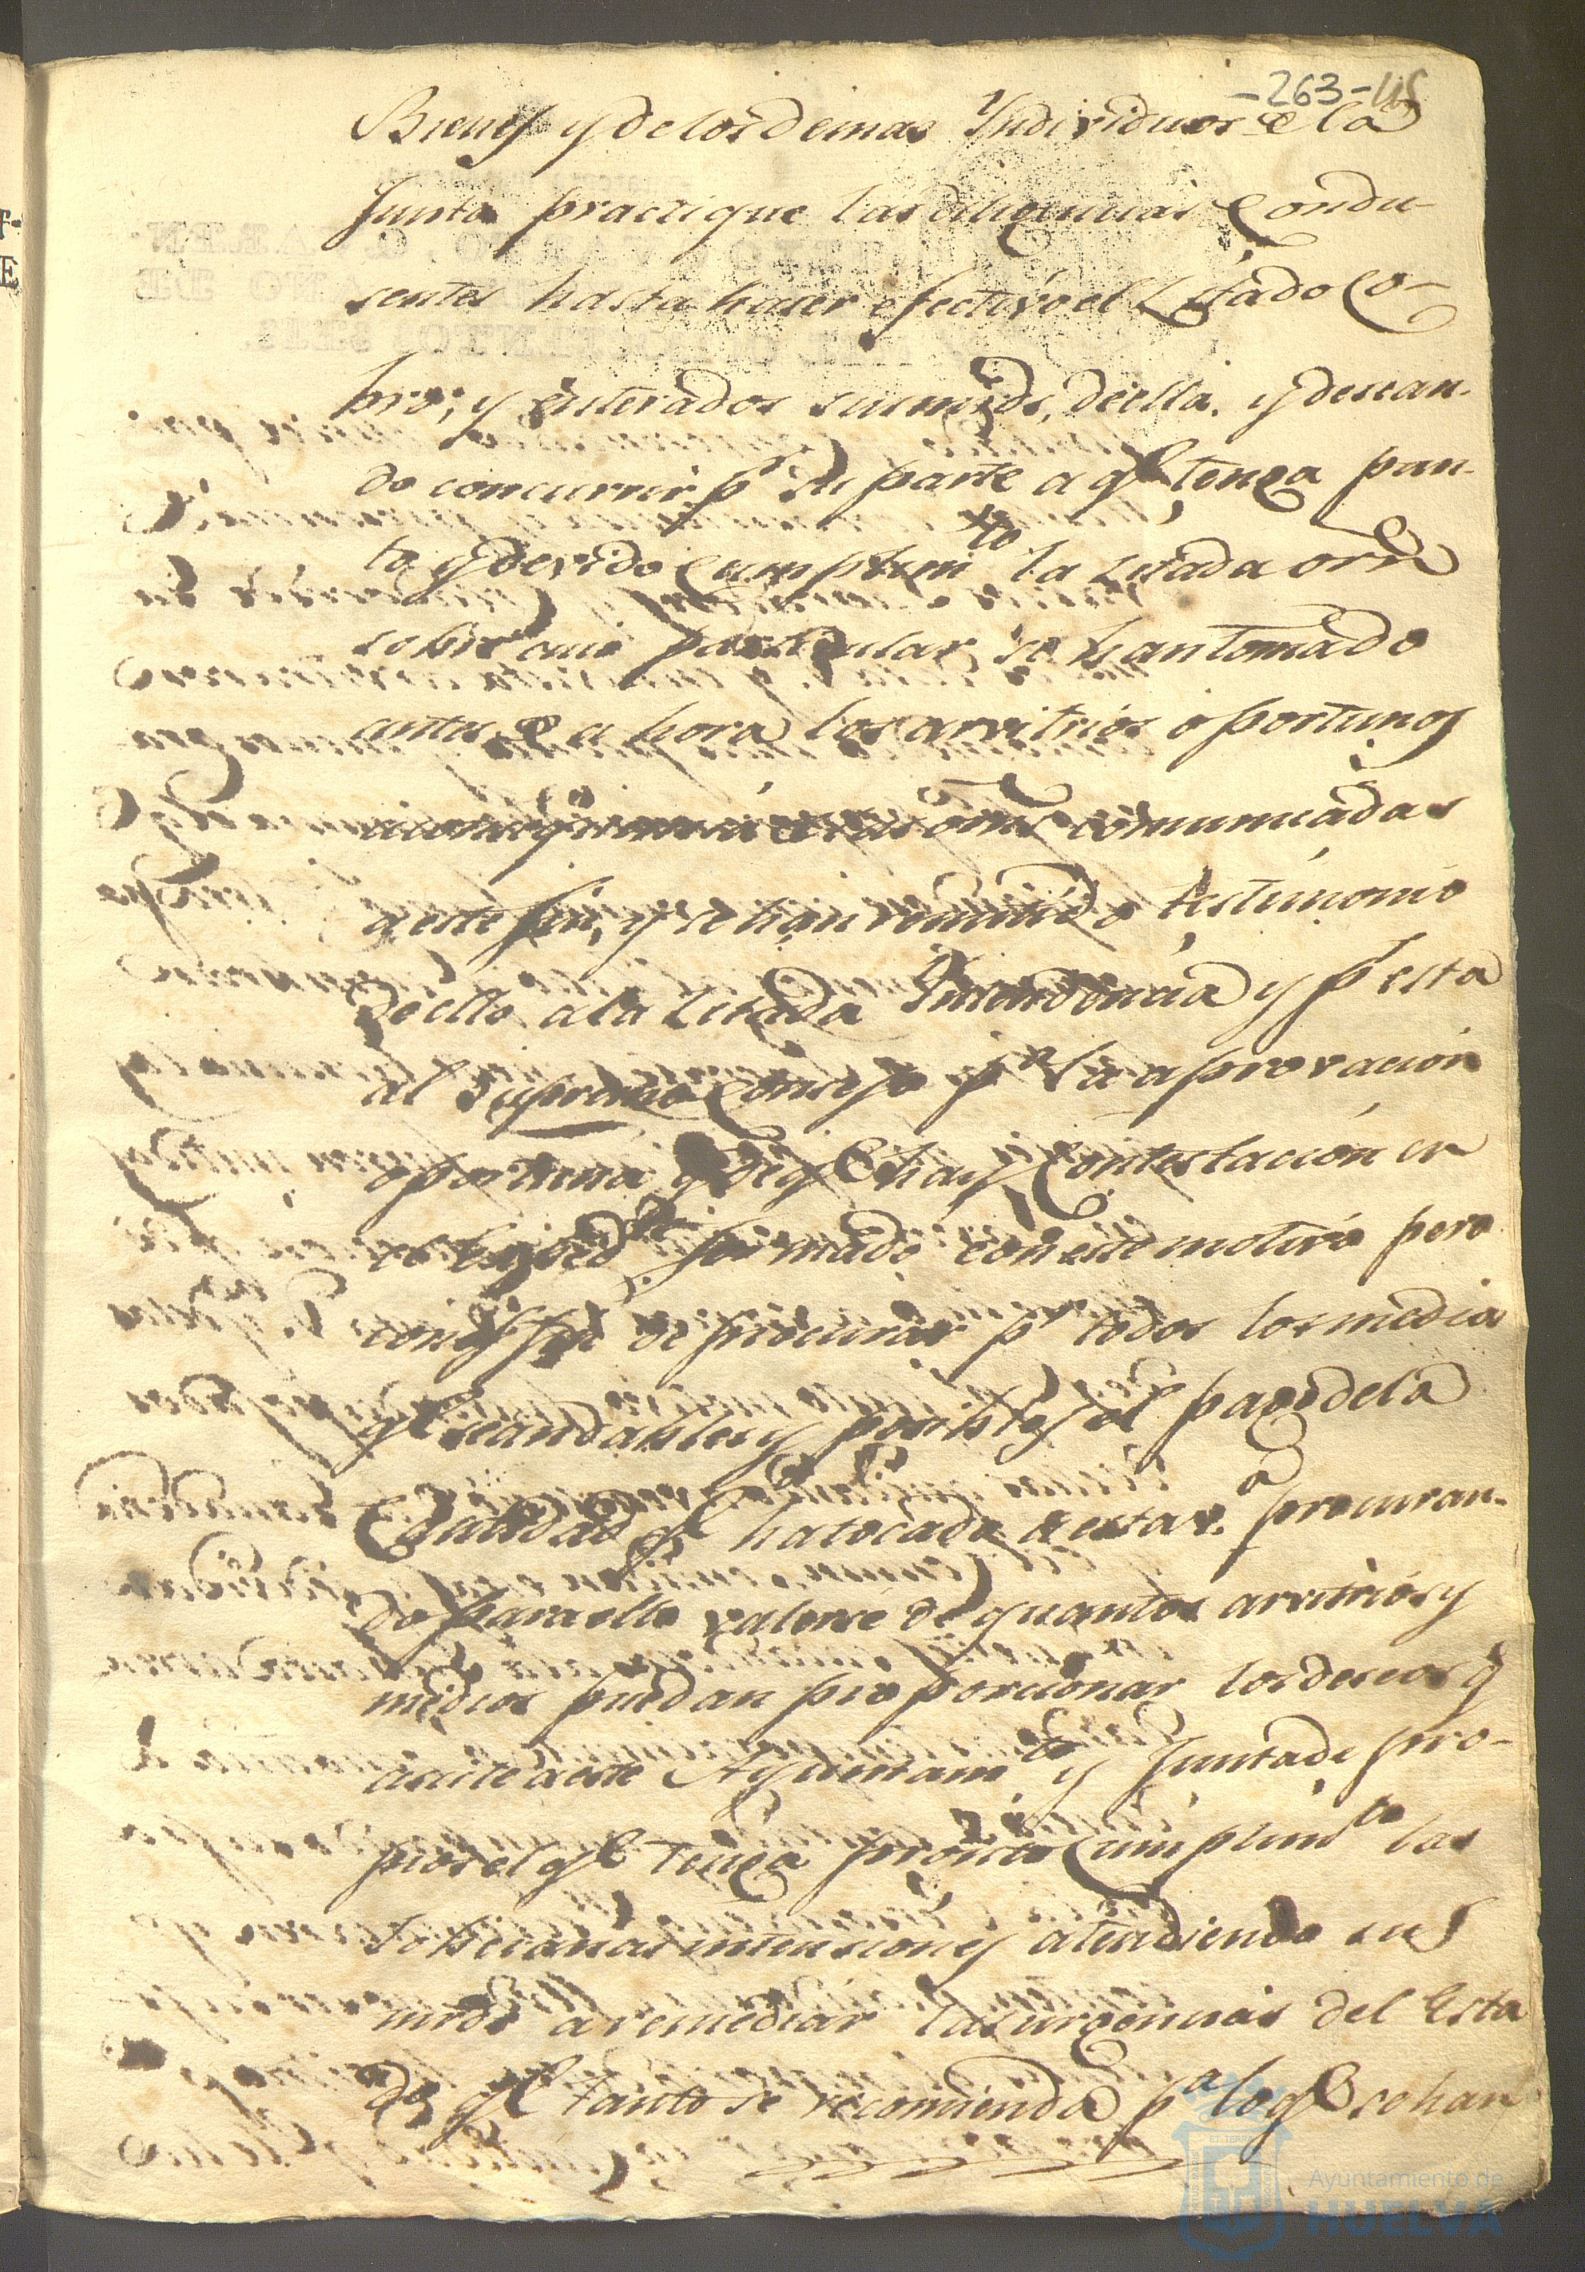 -263-45
Bienes y de los demas Yndividuos de la
Junta practique las diligencias Condu-
sentes hasta haser efectivo el Zitado Co-
bro; y enterados sus mrds, de ella. y desean-
do concurrir pr su parte a qe tenga pun-
to y devido Cumplimto la zitada orn
sobre cuio particular se han tomado
antes de a hora los arvitrios oportunos
a consequencia de las ornes comunicadas
a este fin, y se han remitido testimonio
de ello a la Zitada Yntendencia y pr esta
al Supremo Consejo pa la aprovacion
oportuna y de qe hay Contestacion en
el Exped.te formado con este motivo pero
con el fin de procurar pr todos los medios
qe sean dables y posibles el pago de la
Cantidad qe ha tocado a esta v.a procuran-
do para ello valerse de quantos arvitrios y
medios puedan proporcionar los deseos q
asiste a este Ayuntamto y Junta de pro-
pios el qe tenga pronto Cumplimto las
soberanas intensiones atendiendo sus
mrds a remediar las urgencias del Esta
do qe tanto se recomienda pa lo qe se han
Ayuntamiento de
HUELVA